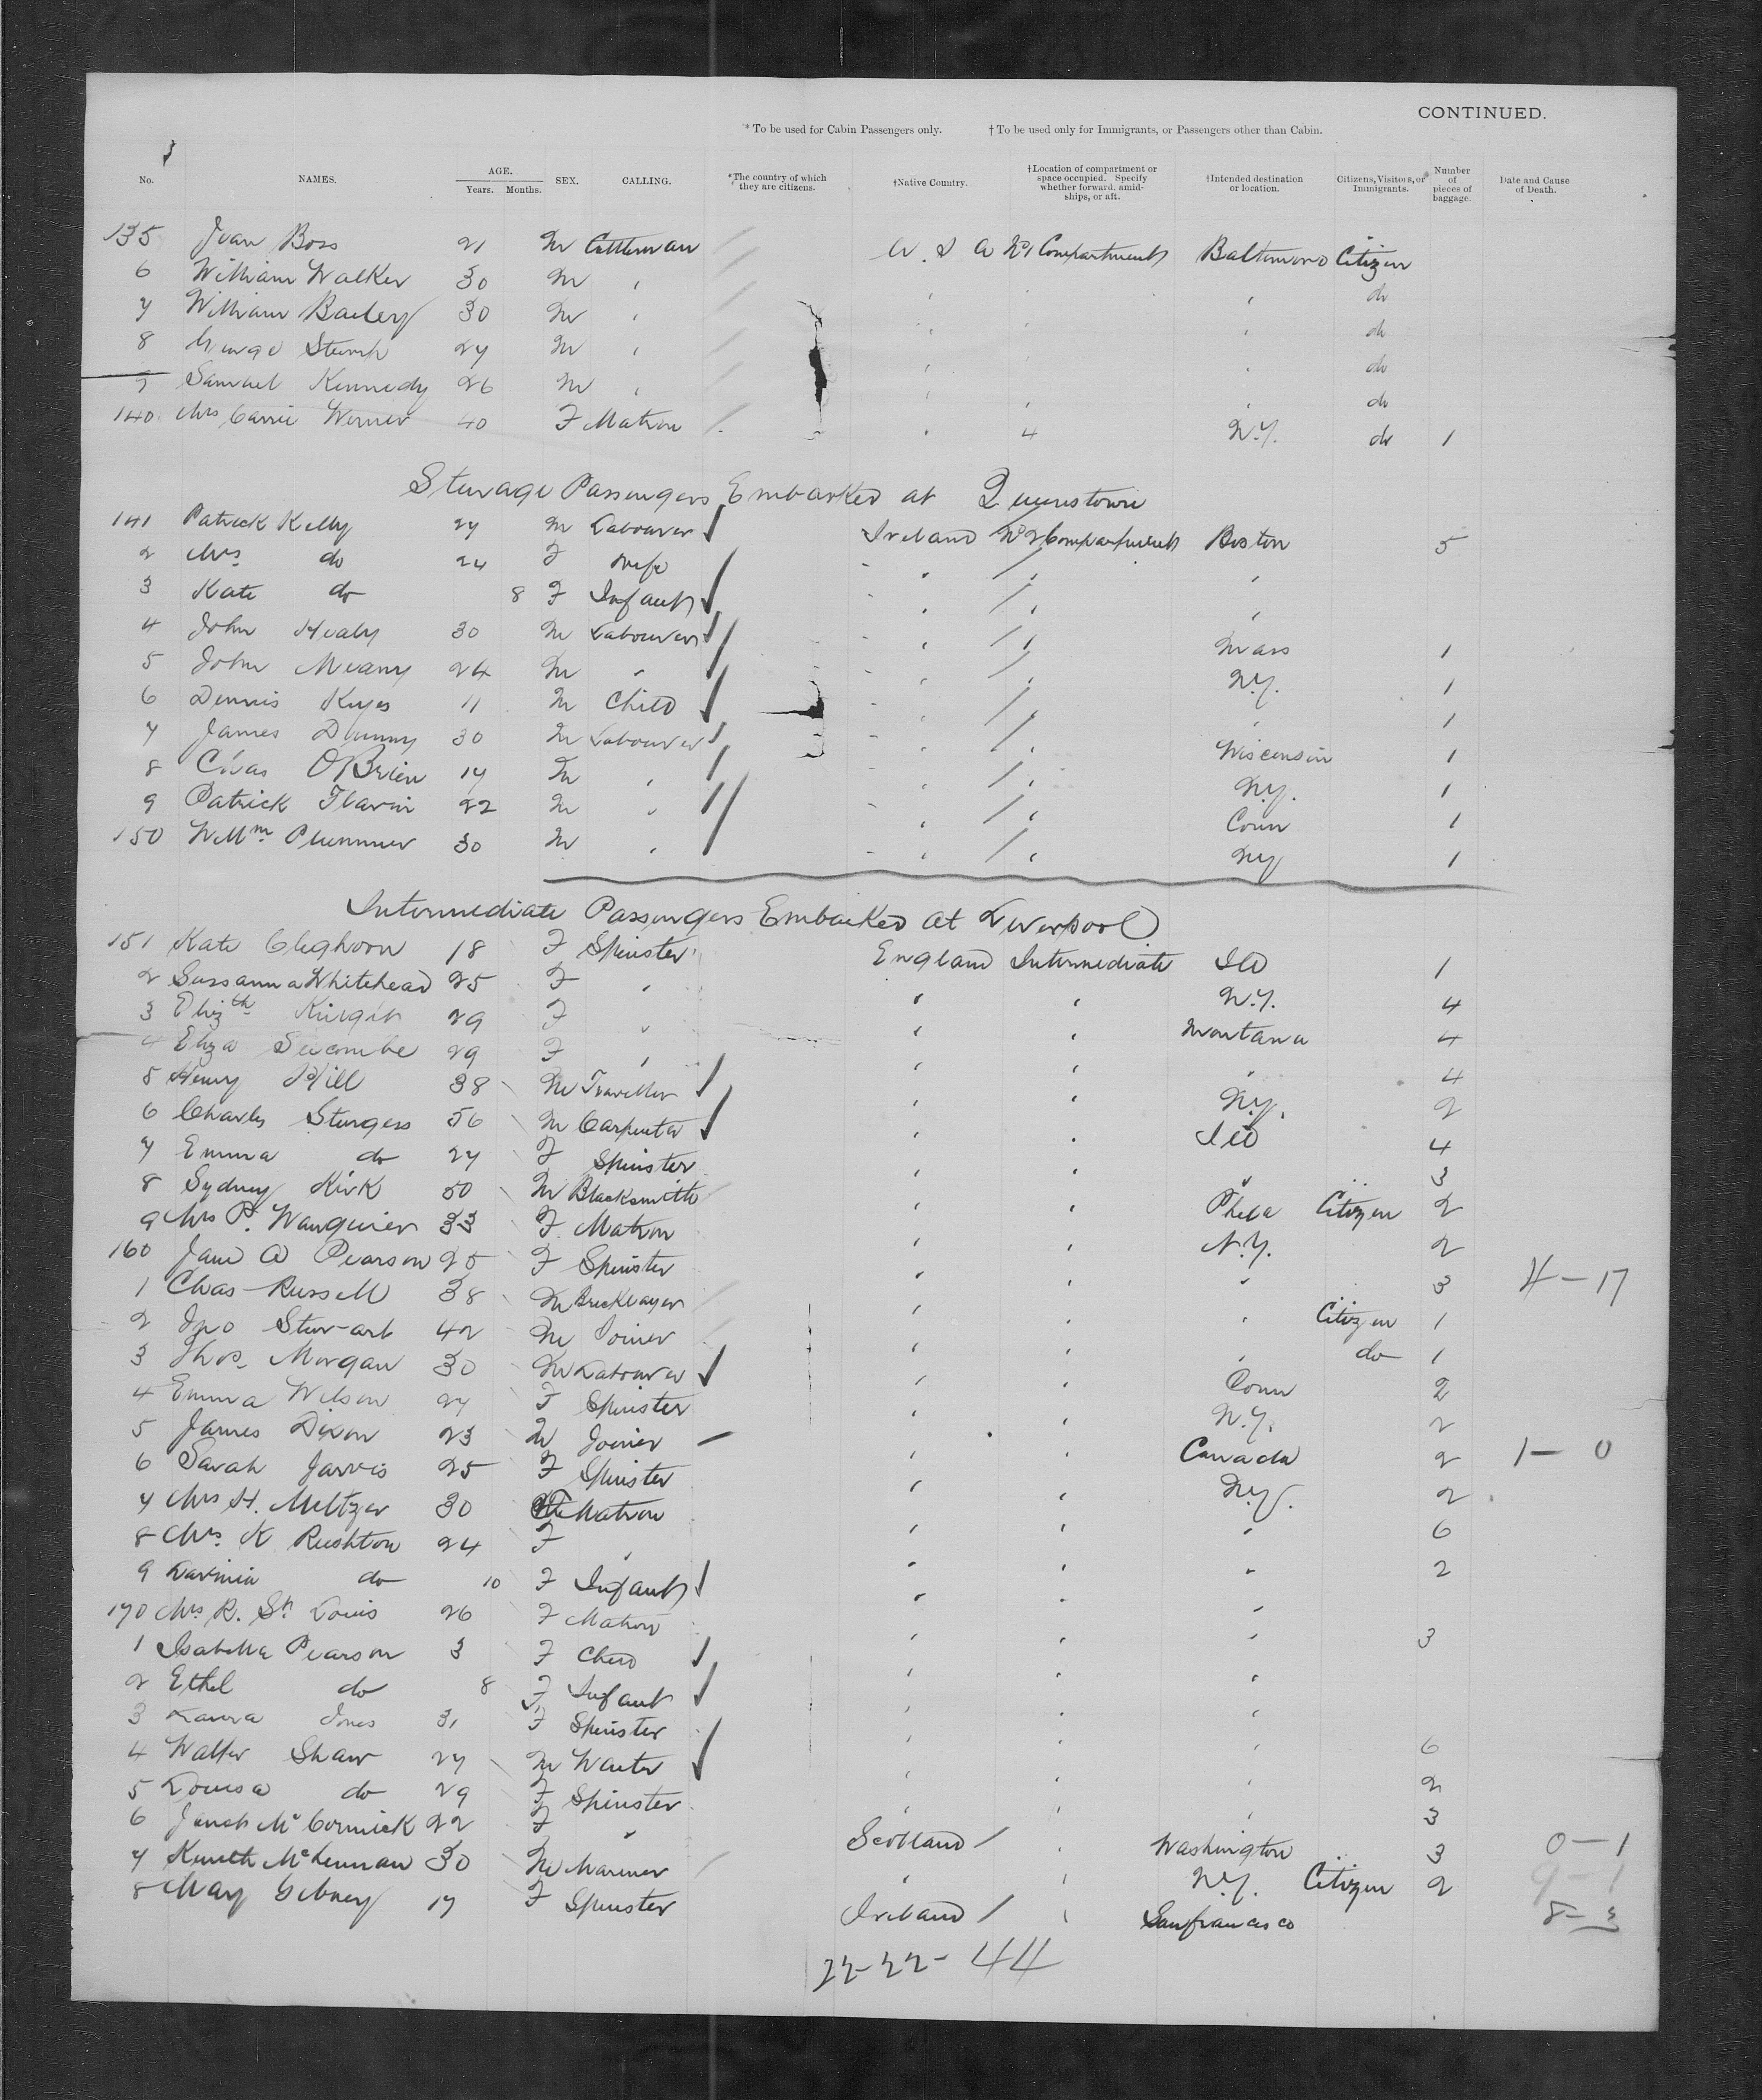 CONTINUED.
* To be used for Cabin Passengers only. † To be used only for Immigrants, or Passengers other than Cabin.
No. NAMES. AGE. Years. Months. SEX. CALLING. *The country of which they are citizens. †Native Country. †Location of compartment or space occupied. Specify whether forward, amidships, or aft. †Intended destination or location. Citizens, Visitors, or Immigrants. Number of pieces of baggage. Date and Cause of Death.
135 Boss 21 M Cattleman U.S.A No 1 Compartment Baltimore Citizen
6 William Walker 30 M " " " " do
7 William Bailey 30 M " " " " do
8 George Stump 27 M " " " " do
9 Samuel Kennedy 26 M " " " " do
140 Mrs Carrie Werner 40 F Matron " 4 N.Y. do 1
Sterage Passengers Embarked at Queenstown
141 Patrick Kelly 27 M Labourer Ireland No 2 Compartment Boston 5
2 Mrs. do 24 F Wife " " "
3 Kate do 8 F Infant " " "
4 John Healy 30 M Labourer " " Mass 1
5 John Meany 24 M " " " N.Y. 1
6 Dennis Keyes 11 M Child " " " 1
7 James Dunny 30 M Labourer " " Wisconsin 1
8 Chas OBrien 17 M " " " N.Y. 1
9 Patrick Flavin 22 M " " " Conn 1
150 Wm Plummer 30 M " " " NY 1
Intermediate Passengers Embarked at Liverpool
151 Kate Cleghorn 18 F Spinster England Intermediate Ill 1
2 Sussanna Whitehead 25 F " " " N.Y. 4
3 Elizth 29 F " " " Montana 4
4 Eliza Seccombe 29 F " " " " 4
5 Henry Hill 38 M Traveller " " N.Y. 2
6 Charles Sturgess 56 M Carpenter " " Ill 4
7 Emma do 27 F Spinster " " " 3
8 Sydney Kirk 50 M Blacksmith " " Phila Citizen 2
9 Mrs P. Wanquier 33 F Matron " " N.Y. 2
160 Jane A Pearson 25 F Spinster " " " 3 4-17
1 Chas Russell 38 M Bricklayer " " " Citizen 1
2 Jno Stewart 42 M Joiner " " " do 1
3 Thos. Morgan 30 M Labourer " " Conn 2
4 Emma Wilson 27 F Spinster " " N.Y. 2
5 James Dixon 23 M Joiner " " Canada 2 1-0
6 Sarah Jarvis 25 F Spinster " " N.Y. 2
7 Mrs H. Meltzer 30 Matron " " " 6
8 Mrs. K Rushton 24 F " " " " 2
9 Lavinia do 10 F Infant " " "
170 Mrs R. St Louis 26 F Matron " " " 3
1 Isabella Pearson 3 F Child " " "
2 Ethel do 8 F Infant " " "
3 Laura Jones 31 F Spinster " " " 6
4 Walter Shaw 27 M Waiter " " " 2
5 Louisa do 29 F Spinster " " " 3
6 Janet McCormick 22 F " Scotland " Washington 3 0-1
7 Kenneth McLennan 30 M Mariner " " N.Y. Citizen 2 9-1
8 May Gibney 17 F Spinster Ireland " Sanfrancisco 8-3
22-22-44